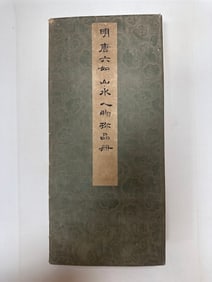 明唐六如山水人物珍品冊